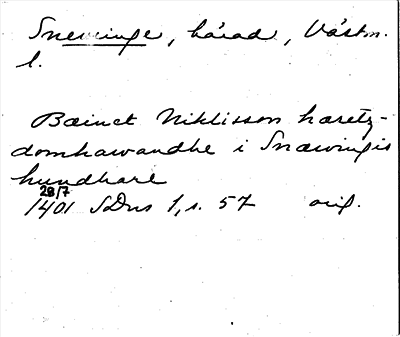 Snevringe, härad, Västm.
l.
Bæinct Niklisson hæretz-
domhawandhe i Snæwingis
hundhare
28/7
1401 SDns 1, s. 57 orig.